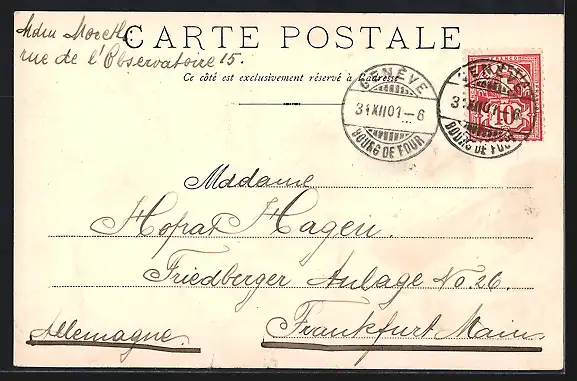 Mdm Morell
CARTE POSTALE
rue de l'Observatoire 15.
Ce côté est exclusivement réservé à l'adresse
GENÈVE
31 XII 01 - 6
BOURG DE FOUR
FRANCO
10
GENÈVE
31 XII 01 - 6
BOURG DE FOUR
Madame
Hofrat Hagen.
Friedberger Anlage No. 26.
Allemagne.
Frankfurt Main.